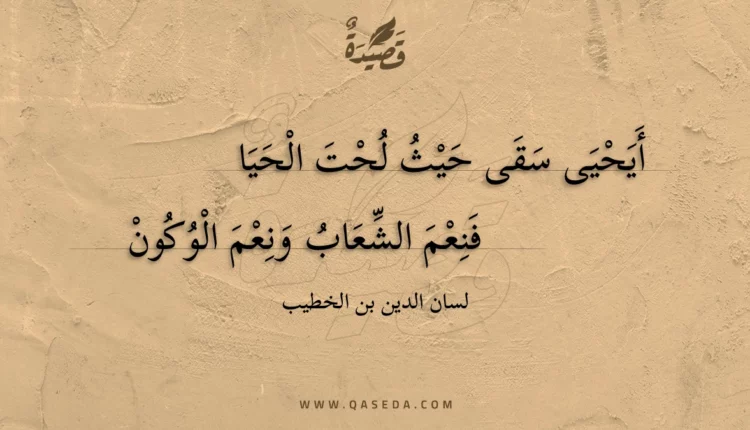 قَصِيدَةٌ
أَيَحْيَى سَقَى حَيْثُ لُحْتَ الْحَيَا
فَنِعْمَ الشِّعَابُ وَنِعْمَ الْوُكُونْ
لسان الدين بن الخطيب
WWW.QASEDA.COM